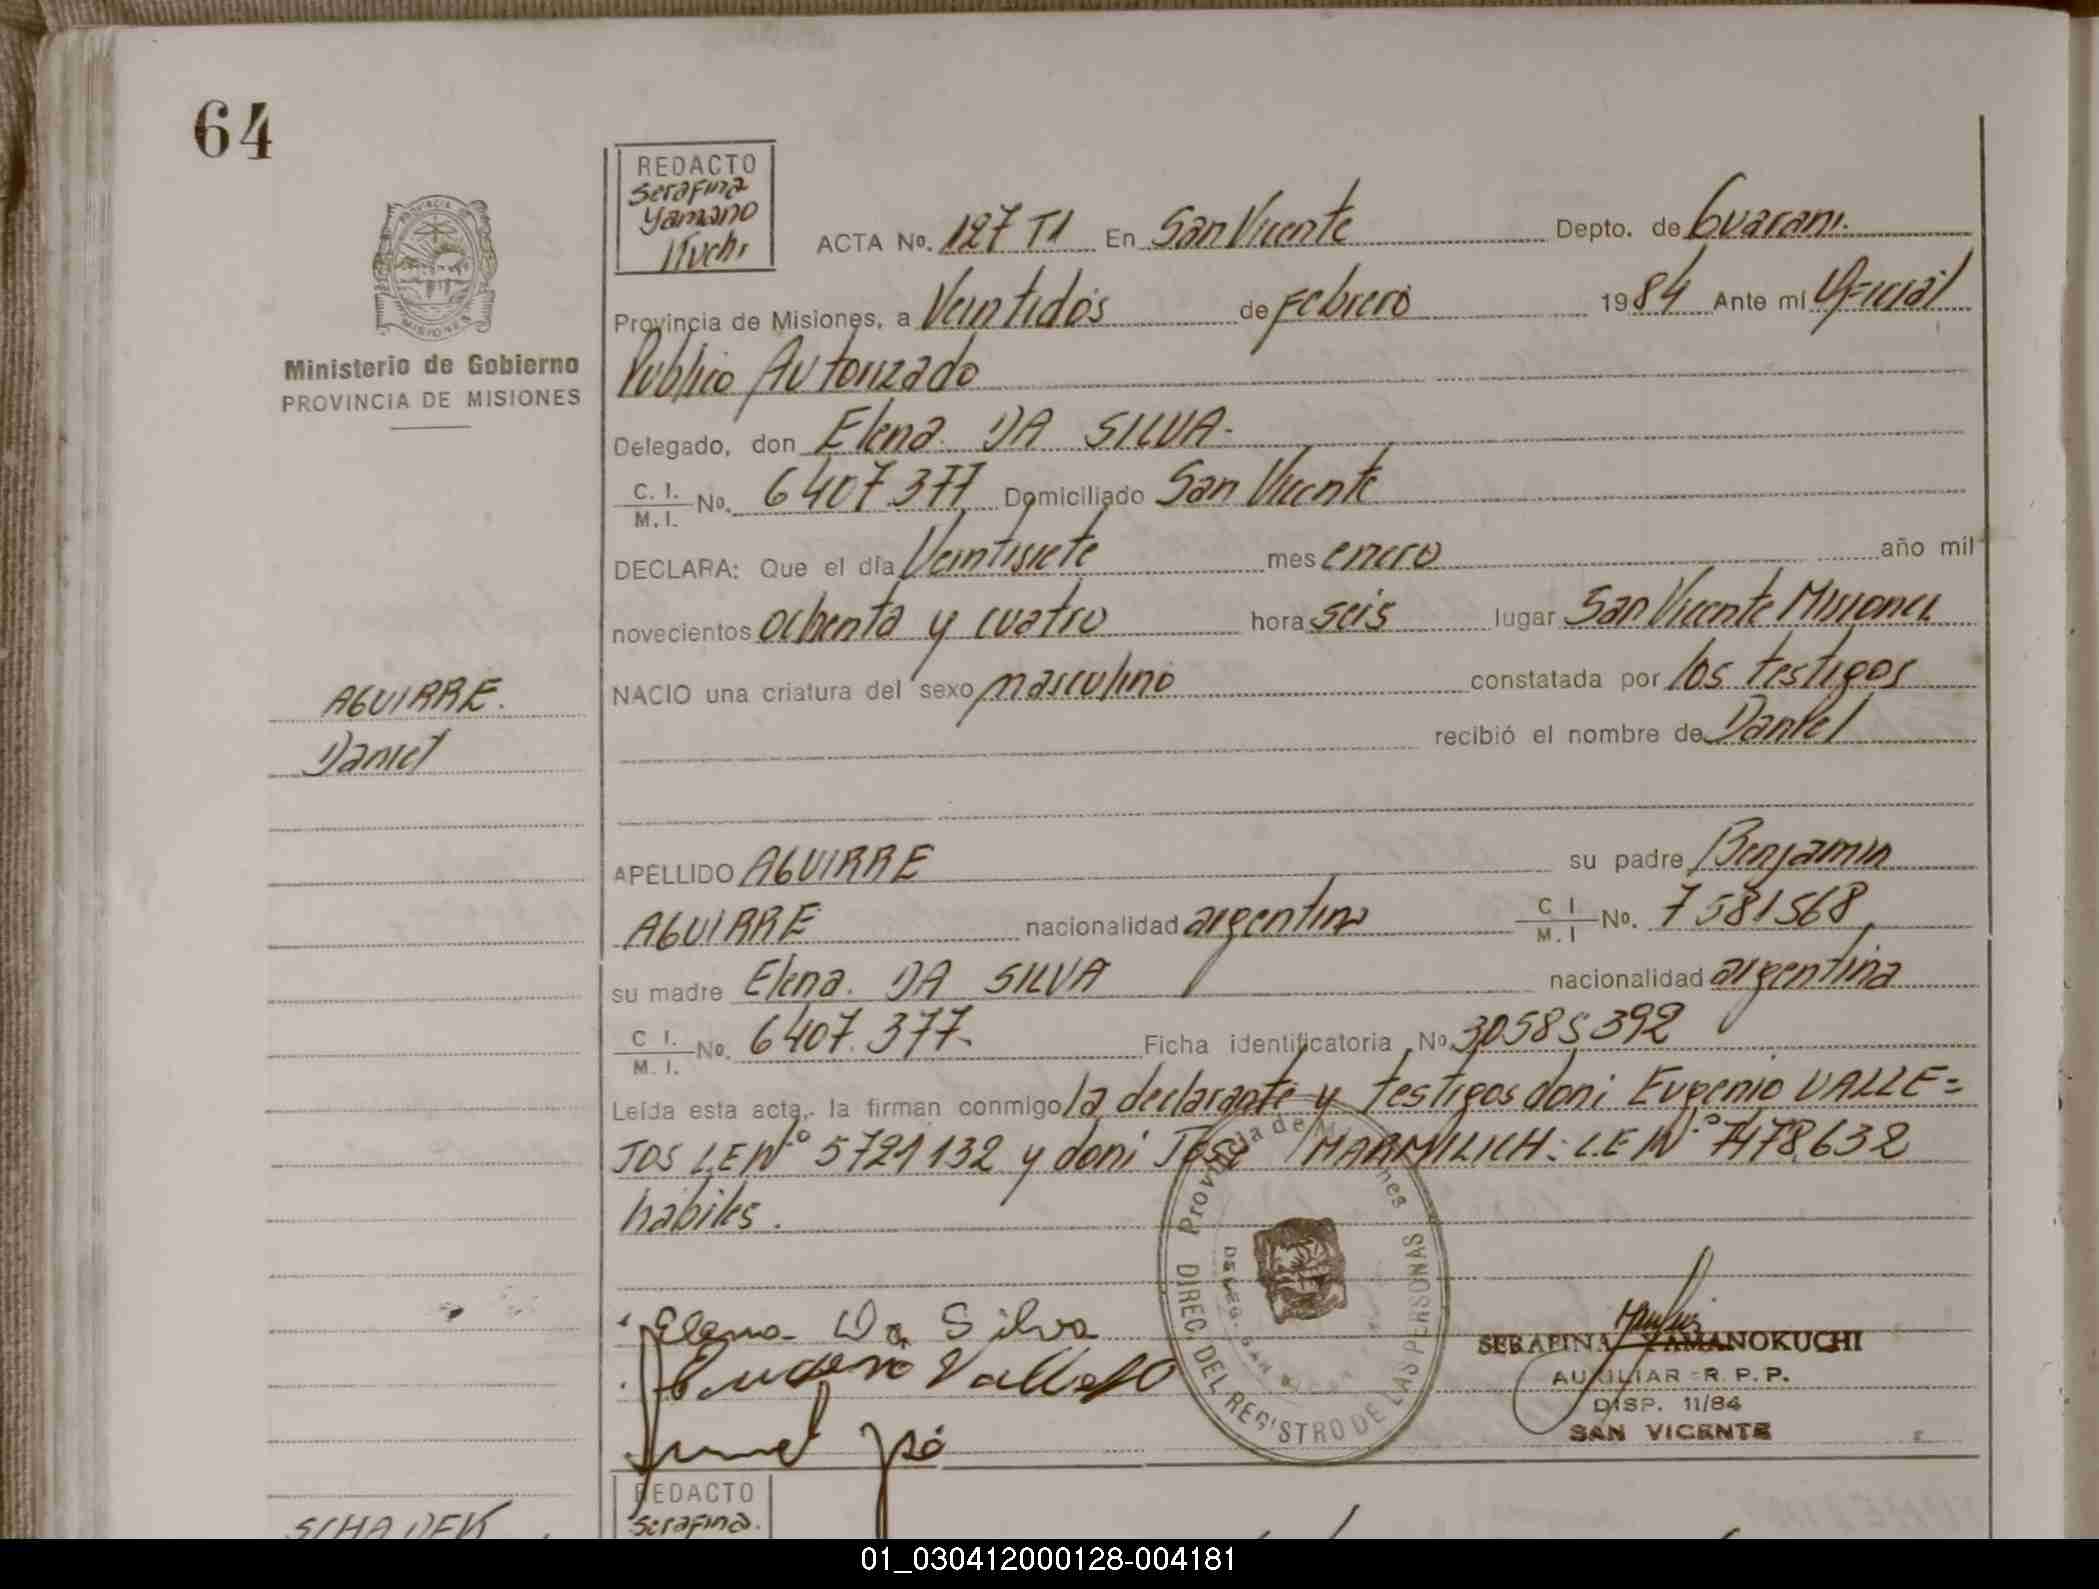 64
REDACTO
Serafina
Yamano
Kuchi
PROVINCIA DE
MISIONES
Ministerio de Gobierno
PROVINCIA DE MISIONES
ACTA No. 127 T1 En San Vicente Depto. de Guarani.
Provincia de Misiones, a Veintidós de Febrero 1984 Ante mi Oficial
Publico Autorizado
Delegado, don Elena DA SILVA-
C. I. / M. I. No. 6407.377 Domiciliado San Vicente
DECLARA: Que el día Veintisiete mes enero año mil
novecientos ochenta y cuatro hora seis lugar San Vicente Misiones
NACIO una criatura del sexo masculino constatada por los testigos
recibió el nombre de Daniel
AGUIRRE.
Daniel
APELLIDO AGUIRRE su padre Benjamin
AGUIRRE nacionalidad argentina C I / M. I No. 7581568
su madre Elena. DA SILVA nacionalidad argentina
C I. / M. I. No. 6407.377- Ficha identificatoria No 30585392
Leída esta acta, la firman conmigo la declarante y testigos doni Eugenio VALLE=
JOS L.E Nº 5721132 y doni José MARMILICH: L.E Nº 7478.632
habiles.
Provincia de Misiones
DIREC. DEL REGISTRO DE LAS PERSONAS
DELEG. SAN
Elena Da Silva
SERAFINA YAMANOKUCHI
AUXILIAR R. P. P.
DISP. 11/84
SAN VICENTE
José
REDACTO
Serafina.
01_030412000128-004181